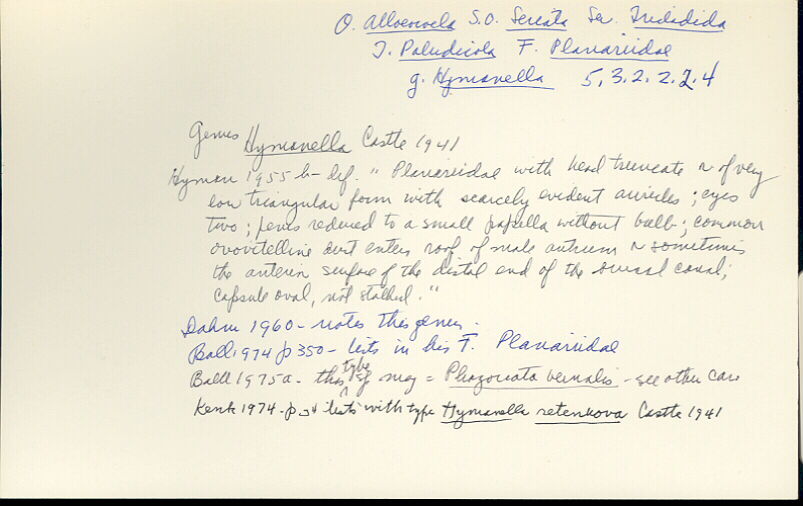 O. Alloeocoela S.O. Seriata Se. Tricladida
T. Paludicola F. Planariidae
g. Hymanella 5,3.2.2.2.4
Genus Hymanella Castle 1941
Hyman 1955 b - def. "Planariidae with head truncate or of very
low triangular form with scarcely evident auricles; eyes
two; penis reduced to a small papilla without bulb; common
ovovitelline duct enters roof of male antrum or sometimes
the anterior surface of the distal end of the bursal canal;
capsule oval, not stalked."
Dahm 1960 - notes this genus.
Ball 1974 p 350 - lists in his F. Planariidae
Ball 1975a - this type sp may = Phagocata vernalis - see other card
Kenk 1974 - p lists with type Hymanella retenuova Castle 1941